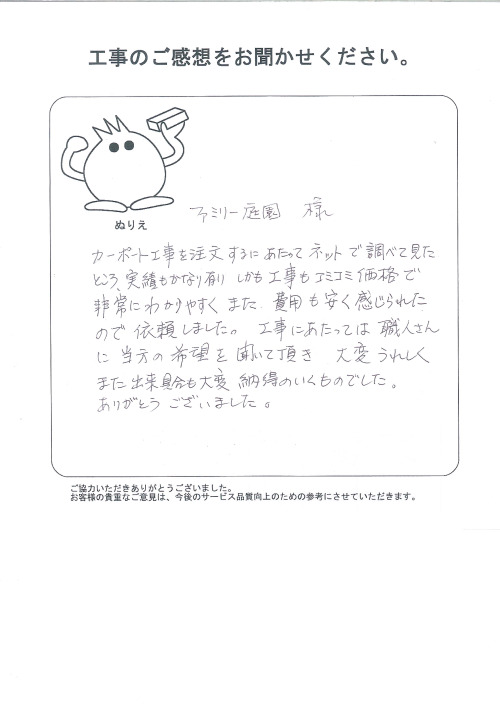 工事のご感想をお聞かせください。
ぬりえ
ファミリー庭園 様
カーポート工事を注文するにあたって ネットで調べて見た
ところ、実績もかなり有り しかも工事もコミコミ価格で
非常にわかりやすく また 費用も安く感じられた
ので 依頼しました。 工事にあたっては 職人さん
に 当方の希望を聞いて頂き 大変うれしく
また 出来具合も大変 納得のいくものでした。
ありがとうございました。
ご協力いただきありがとうございました。
お客様の貴重なご意見は、今後のサービス品質向上のための参考にさせていただきます。